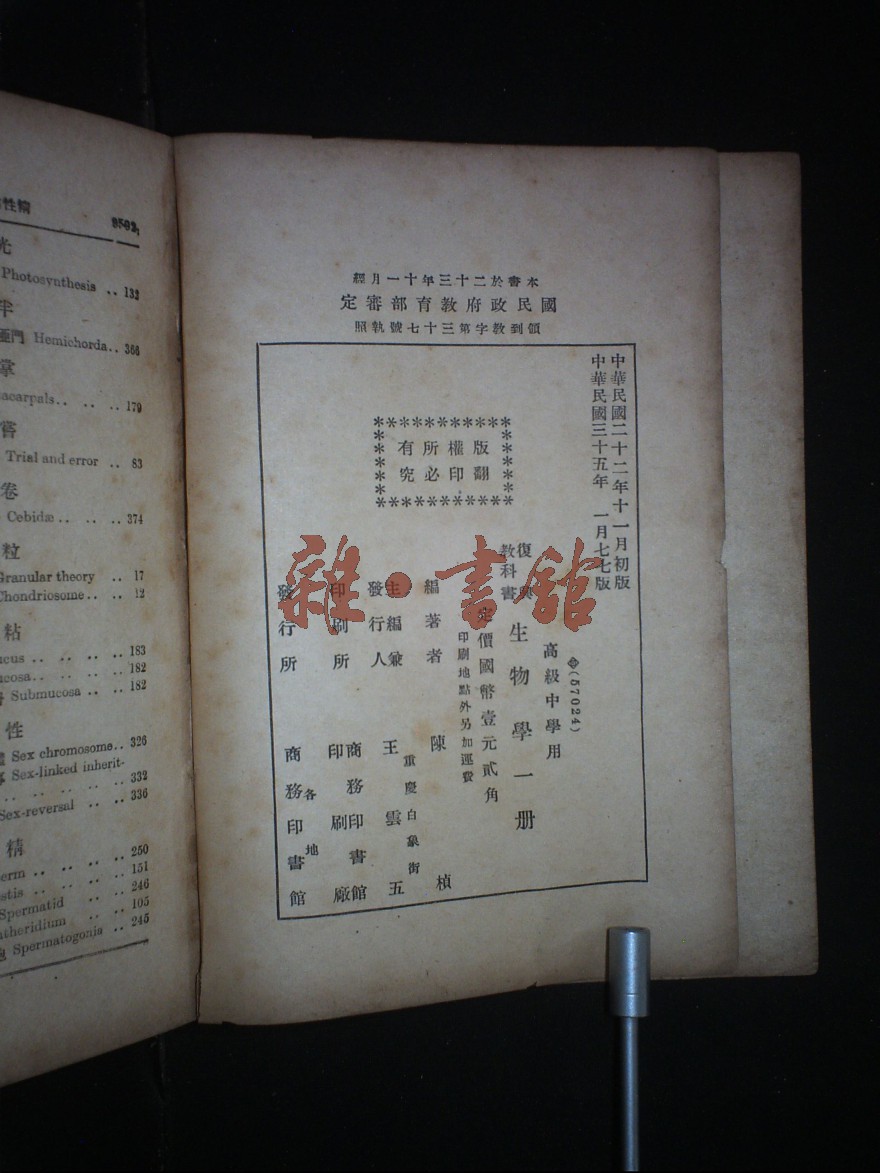 性精
光
Photosynthesis .. 132
半
門 Hemichorda.. 366
掌
acarpals.. .. .. 179
嘗
Trial and error .. 83
卷
Cebidæ.. .. .. 374
粒
Granular theory .. 17
Chondriosome.. .. 12
粘
ucus .. .. .. .. 183
ucosa.. .. .. .. 182
Submucosa .. .. 182
性
Sex chromosome.. 326
Sex-linked inherit-
.. .. .. .. .. 332
Sex-reversal .. .. 336
精
erm .. .. .. .. 250
stis .. .. .. .. 151
Spermatid .. .. 246
theridium .. .. 105
Spermatogonia .. 245
本書於二十三年十一月經
國民政府教育部審定
領到教字第三十七號執照
中華民國二十二年十一月初版
中華民國三十五年一月七七版
版權所有
翻印必究
(57024)
高級中學用
復興教科書
生物學一册
定價國幣壹元貳角
印刷地點外另加運費
編著者 陳楨
主編兼發行人 王雲五
重慶白象街
印刷所 商務印書館印刷廠
發行所 各地商務印書館
雜·書館